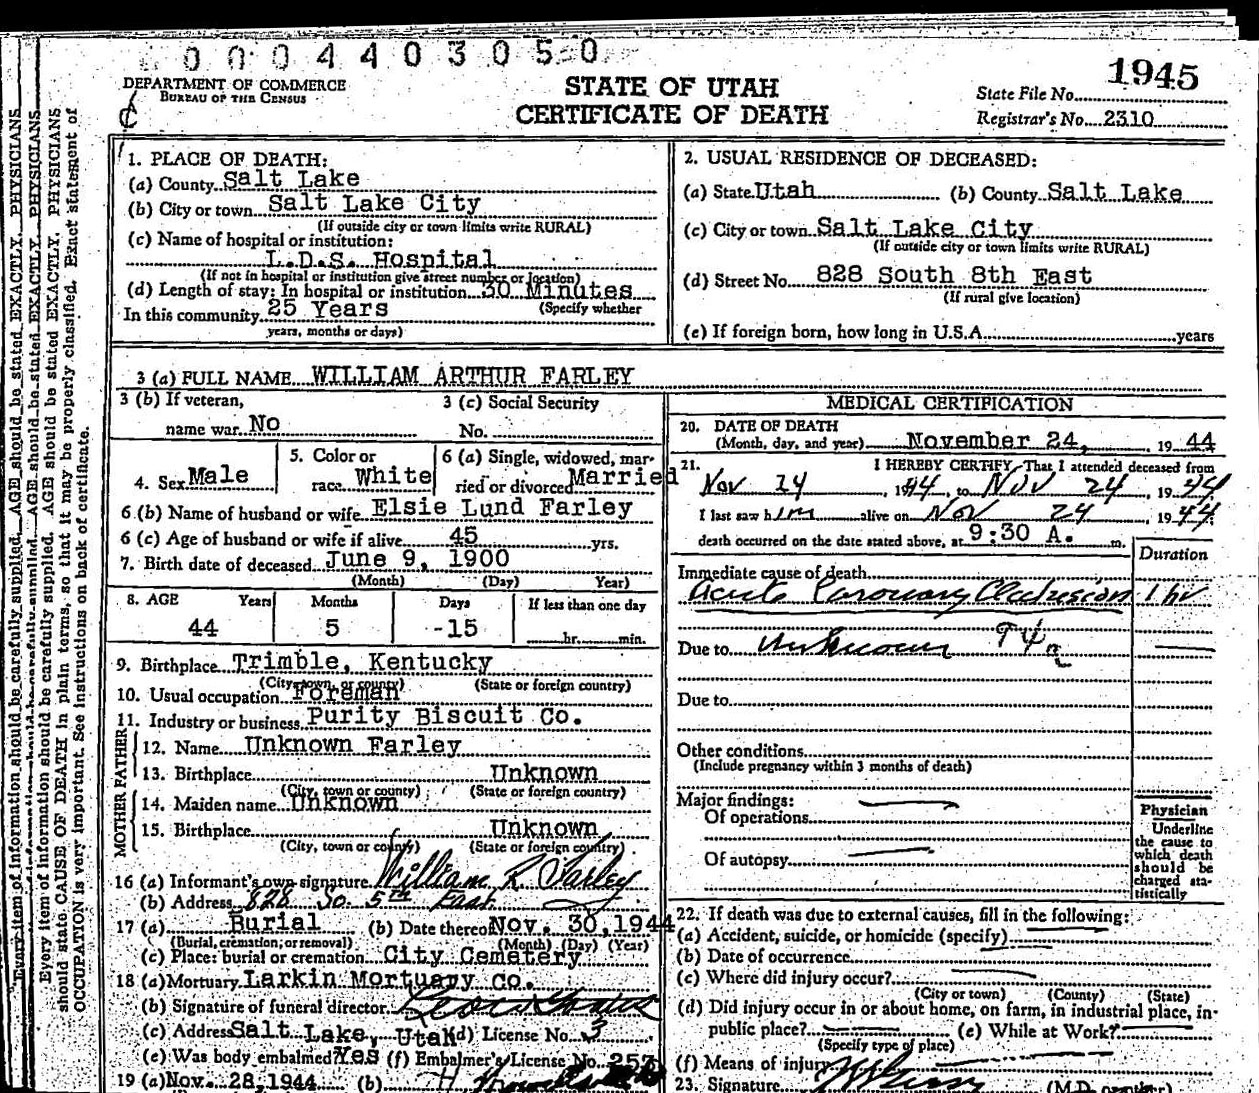 0 0 0 4 4 0 3 0 5 0
DEPARTMENT OF COMMERCE
BUREAU OF THE CENSUS
STATE OF UTAH
CERTIFICATE OF DEATH
State File No. 1945
Registrar's No. 2310
1. PLACE OF DEATH:
(a) County Salt Lake
(b) City or town Salt Lake City
(If outside city or town limits write RURAL)
(c) Name of hospital or institution:
L.D.S. Hospital
(If not in hospital or institution give street number or location)
(d) Length of stay: In hospital or institution 30 Minutes
(Specify whether
In this community 25 Years
years, months or days)
2. USUAL RESIDENCE OF DECEASED:
(a) State Utah (b) County Salt Lake
(c) City or town Salt Lake City
(If outside city or town limits write RURAL)
(d) Street No. 828 South 8th East
(If rural give location)
(e) If foreign born, how long in U.S.A. years
3 (a) FULL NAME WILLIAM ARTHUR FARLEY
3 (b) If veteran,
name war No
3 (c) Social Security
No.
4. Sex Male
5. Color or
race White
6 (a) Single, widowed, mar-
ried or divorced Married
6 (b) Name of husband or wife Elsie Lund Farley
6 (c) Age of husband or wife if alive 45 yrs.
7. Birth date of deceased June 9, 1900
(Month) (Day) Year)
8. AGE Years Months Days If less than one day
44 5 -15 hr. min.
9. Birthplace Trimble, Kentucky
(City, town, or county) (State or foreign country)
10. Usual occupation Foreman
11. Industry or business Purity Biscuit Co.
FATHER
12. Name Unknown Farley
13. Birthplace Unknown
(City, town or county) (State or foreign country)
MOTHER
14. Maiden name Unknown
15. Birthplace Unknown
(City, town or county) (State or foreign country)
16 (a) Informant's own signature William R Farley
(b) Address 828 So. 5th East
17 (a) Burial (b) Date thereof Nov. 30, 1944
(Burial, cremation, or removal) (Month) (Day) (Year)
(c) Place: burial or cremation City Cemetery
18 (a) Mortuary Larkin Mortuary Co.
(b) Signature of funeral director
(c) Address Salt Lake, Utah (d) License No. 3
(e) Was body embalmed? Yes (f) Embalmer's License No. 257
19 (a) Nov. 28, 1944 (b)
MEDICAL CERTIFICATION
20. DATE OF DEATH
(Month, day, and year) November 24, 1944
21. I HEREBY CERTIFY, That I attended deceased from
Nov 24, 1944 to Nov 24, 1944
I last saw him alive on Nov 24, 1944
death occurred on the date stated above, at 9:30 A. m.
Duration
Immediate cause of death
Acute Coronary Occlusion 1 hr
Due to Unknown 94a
Due to
Other conditions
(Include pregnancy within 3 months of death)
Major findings:
Of operations
Of autopsy
Physician
Underline
the cause to
which death
should be
charged sta-
tistically
22. If death was due to external causes, fill in the following:
(a) Accident, suicide, or homicide (specify)
(b) Date of occurrence
(c) Where did injury occur?
(City or town) (County) (State)
(d) Did injury occur in or about home, on farm, in industrial place, in-
public place? (e) While at Work?
(Specify type of place)
(f) Means of injury
23. Signature (M.D.
Every item of information should be carefully supplied. AGE should be stated EXACTLY. PHYSICIANS
should state CAUSE OF DEATH in plain terms, so that it may be properly classified. Exact statement of
OCCUPATION is very important. See instructions on back of certificate.